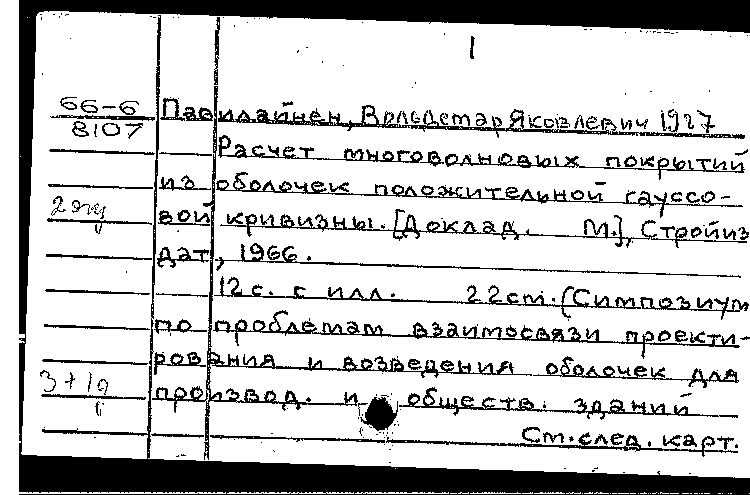 1
66-6
8107
Павилайнен, Вольдемар Яковлевич 1927
Расчет многоволновых покрытий
из оболочек положительной гауссо-
2 экз
вой кривизны. [Доклад. М.], Стройиз
дат, 1966.
12с. с илл. 22cm. (Симпозиум
по проблемам взаимосвязи проекти-
рования и возведения оболочек для
производ. и обществ. зданий
См. след. карт.